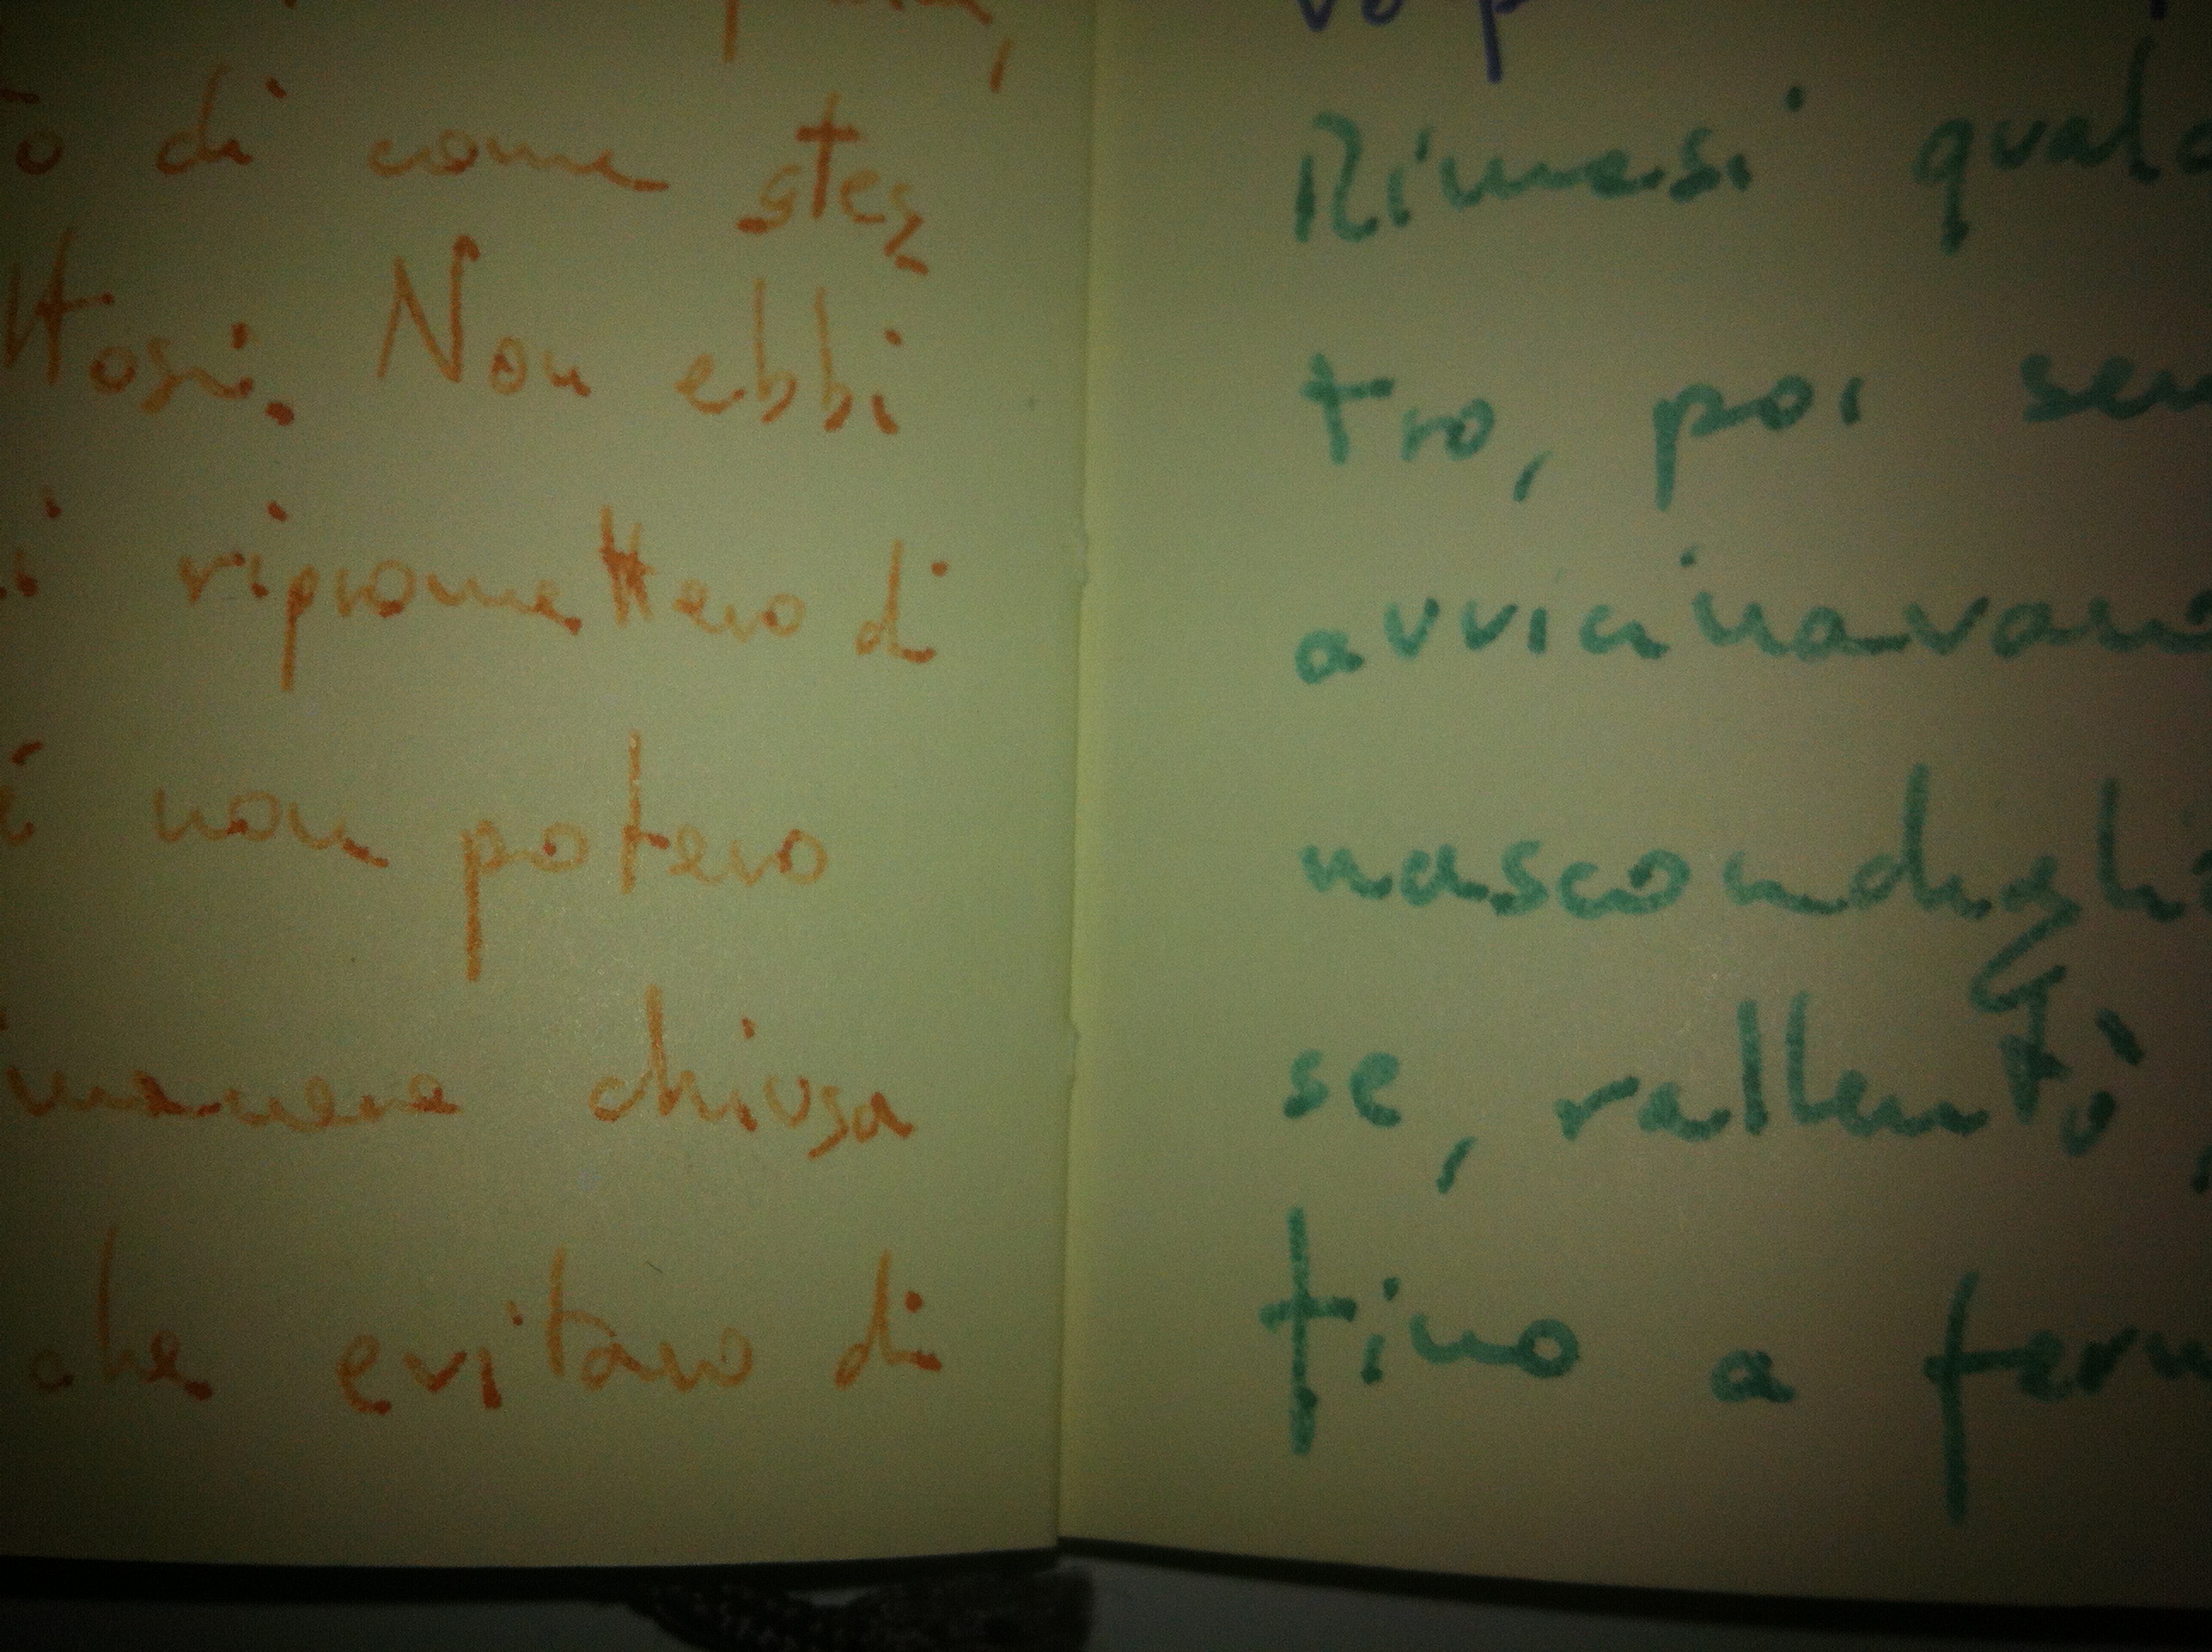 di come stes
ttosi. Non ebbi
i ripromettevo di
non potevo
rimanere chiusa
che evitavo di
Rimasi qualc
tro, poi sen
avvicinavano
nascondiglio
se, rallentò,
fino a ferm